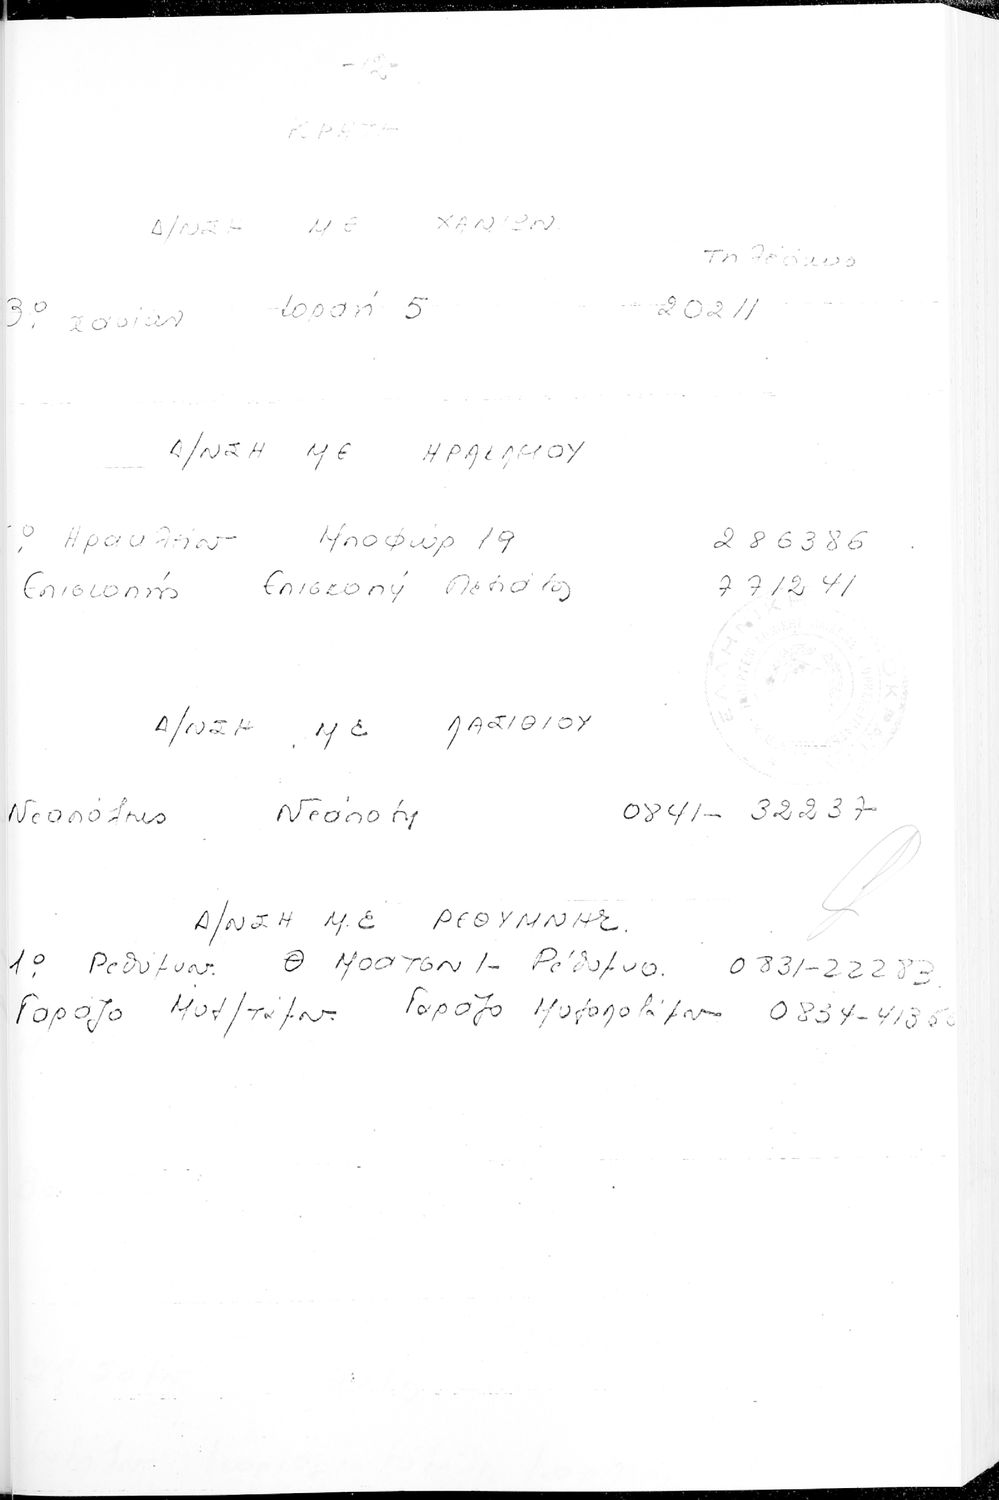 -12-
ΚΡΗΤΗ
Δ/ΝΣΗ ΜΕ ΧΑΝΙΩΝ
Τηλέφωνο
3ο Χανίων 5 20211
Δ/ΝΣΗ ΜΕ ΗΡΑΚΛΕΙΟΥ
Ηρακλείου Μποφώρ 19 286386
Επισκοπής Επισκοπή Πεδιάδος 771241
ΕΛΛΗΝΙΚΗ
Δ/ΝΣΗ ΜΕ ΛΑΣΙΘΙΟΥ
Νεαπόλεως Νεάπολη 0841- 32237
Δ/ΝΣΗ Μ.Ε ΡΕΘΥΜΝΗΣ.
1ο Ρεθύμνης Θ 1- Ρέθυμνο. 0831-22283.
Γαράζο Μυλ/τάμου Γαράζο Μυλοποτάμου 0834-